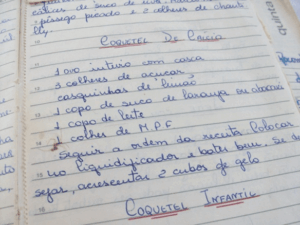 xícaras de suco de
pêssego picado e 2 colheres de chan
tilly.
COQUETEL DE
1 ovo inteiro com casca
3 colheres de açúcar
casquinhas de limão
1 copo de suco de laranja ou abacaxi
1 copo de leite
1 colher de M.P.F
Seguir a ordem da receita. Colocar
no liquidificador e bater bem. Se de
sejar, acrescentar 2 cubos de gelo
COQUETEL INFANTIL
quinta